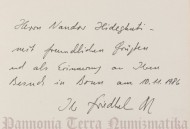 Herrn Nandor Hidegkuti -
mit freundlichen Grüßen
und als Erinnerung an Ihren
Besuch in Bonn am 10.11.1986
Ihr Friedhel M
Pannonia Terra Numizmatika